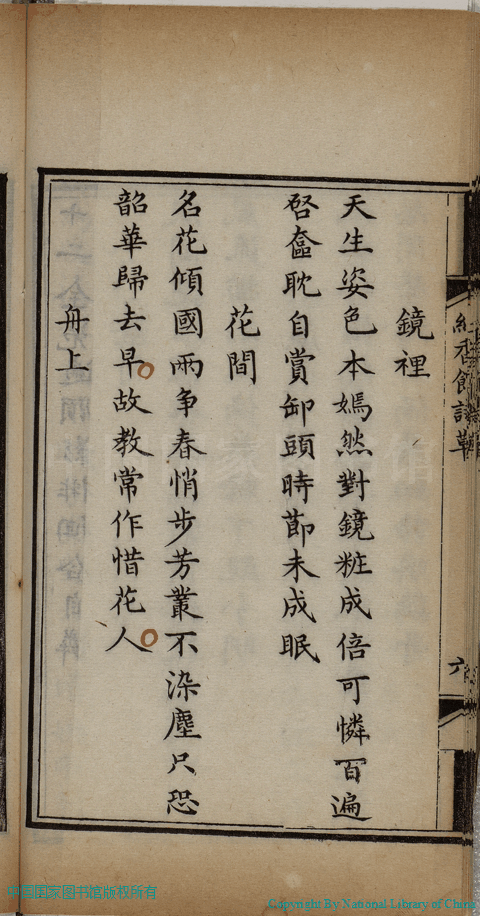 鏡裡
天生姿色本嫣然對鏡粧成倍可憐百遍
啓奩耽自賞卸頭時節未成眠
花間
名花傾國兩争春悄步芳叢不染塵只恐
韶華歸去早故教常作惜花人
舟上
紅香館詩草
六
中国国家图书馆版权所有
Copyright By National Library of China